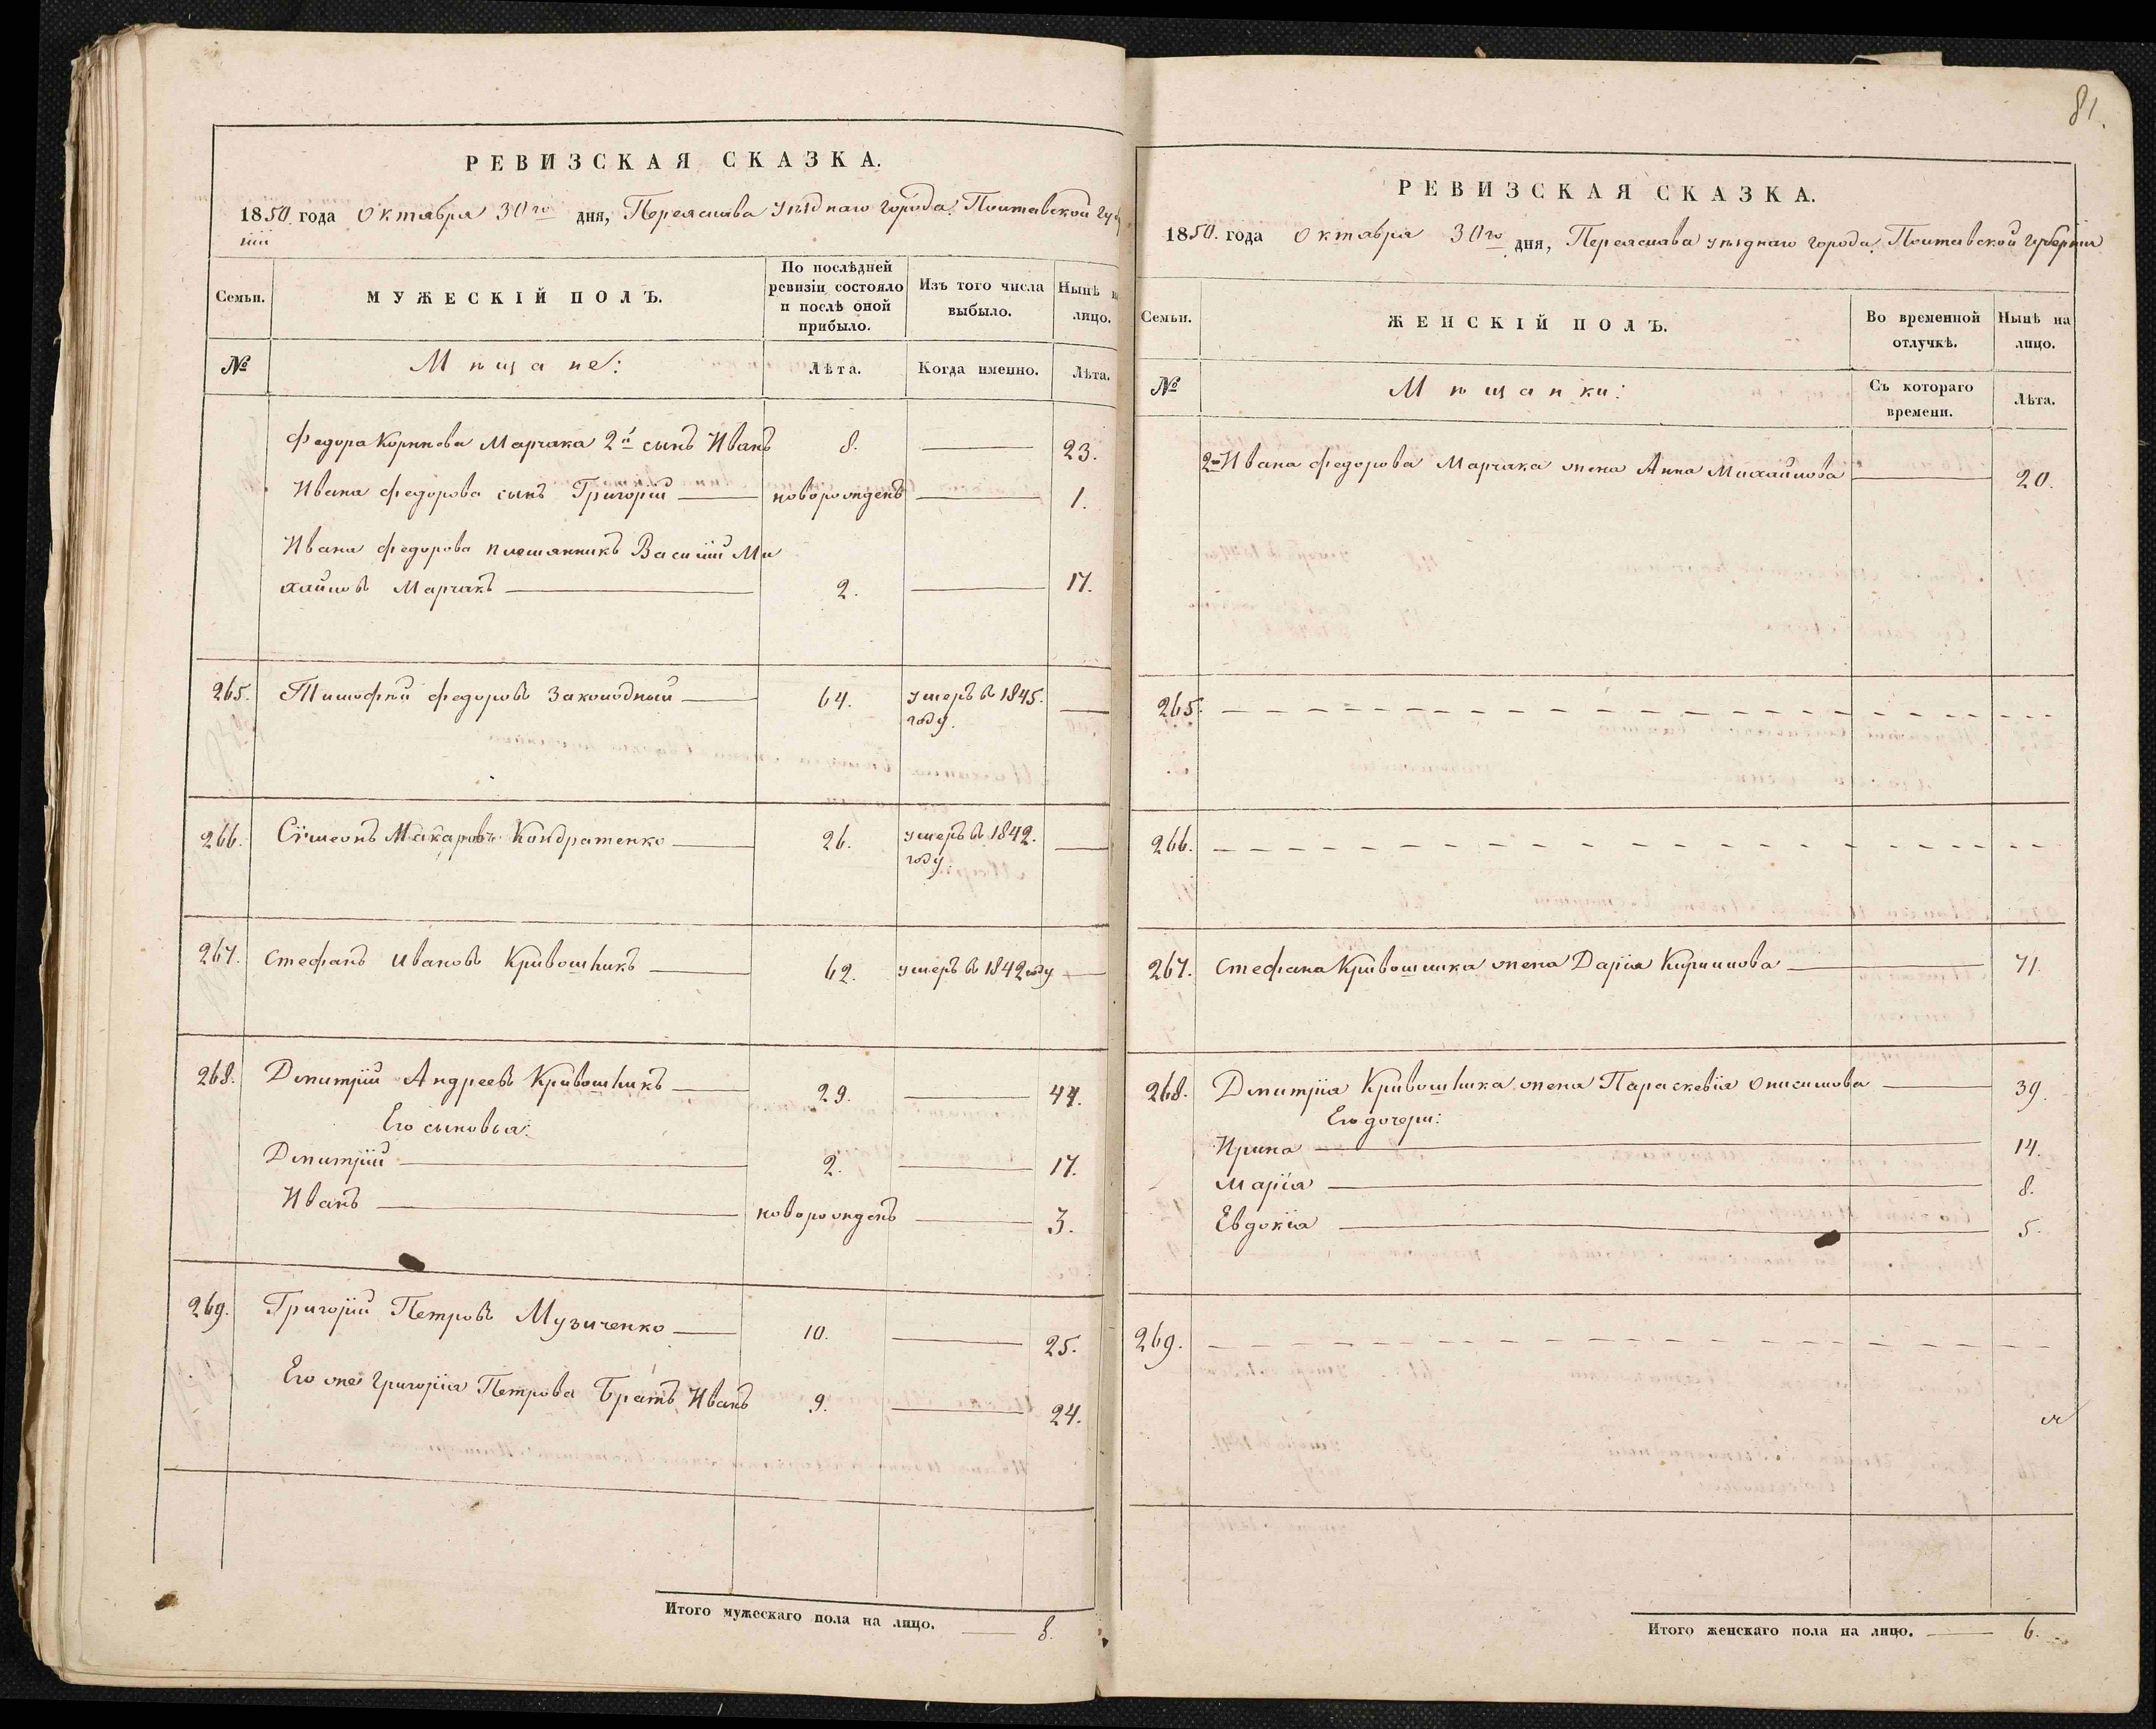 РЕВИЗСКАЯ СКАЗКА.
1850. года Октября 30го дня, Переяслава уѣзднаго города, Полтавской Губер
ніи
Семьи.
МУЖЕСКІЙ ПОЛЪ.
По послѣдней ревизіи состояло и послѣ оной прибыло.
Изъ того числа выбыло.
Нынѣ на лицо.
№
Мѣщане:
Лѣта.
Когда именно.
Лѣта.
Федора Корнѣева Марчака 2й сынъ Иванъ 8. 23.
Ивана Федорова сынъ Григорій новорожденъ 1.
Ивана Федорова племянникъ Василій Ми
хайловъ Марчакъ 2. 17.
265. Тимофѣй Федоровъ Заколодный 64. умеръ въ 1845.
году.
266. Сѵмеонъ Макаровъ Кондратенко 26. умеръ въ 1842.
году.
267. Стефанъ Ивановъ Кривошыкъ 62. умеръ въ 1842 году
268. Дмитрій Андреевъ Кривошыкъ 29. 44.
Его сыновья:
Дмитрій 2. 17.
Иванъ новорожденъ 3.
269. Григорій Петровъ Музиченко 10. 25.
Его же Григорія Петрова братъ Иванъ 9. 24.
Итого мужескаго пола на лицо. 8.
81.
РЕВИЗСКАЯ СКАЗКА.
1850. года Октября 30го дня, Переяслава уѣзднаго города, Полтавской Губерніи
Семьи.
ЖЕНСКІЙ ПОЛЪ.
Во временной отлучкѣ.
Нынѣ на лицо.
№
Мѣщанки:
Съ котораго времени.
Лѣта.
Ивана Федорова Марчака жена Анна Михайлова 20.
265.
266.
267. Стефана Кривошыка жена Дарія Кирилова 71.
268. Дмитрія Кривошыка жена Параскевія Онисимова 39.
Его дочери:
Ирина 14.
Марія 8.
Евдокія 5.
269.
Итого женскаго пола на лицо. 6.